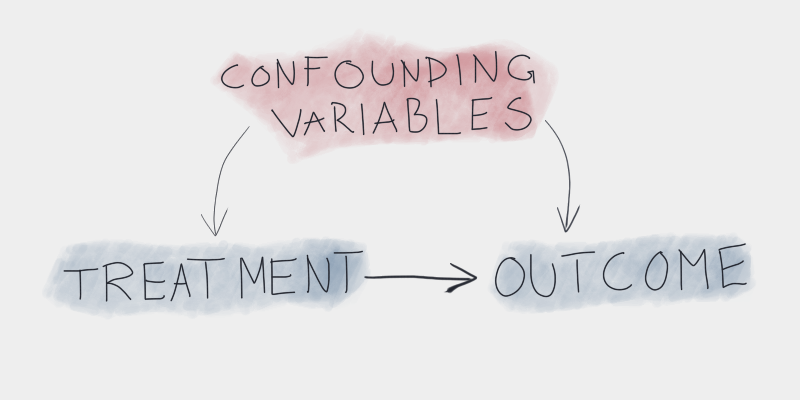 CONFOUNDING
VARIABLES
TREATMENT
OUTCOME